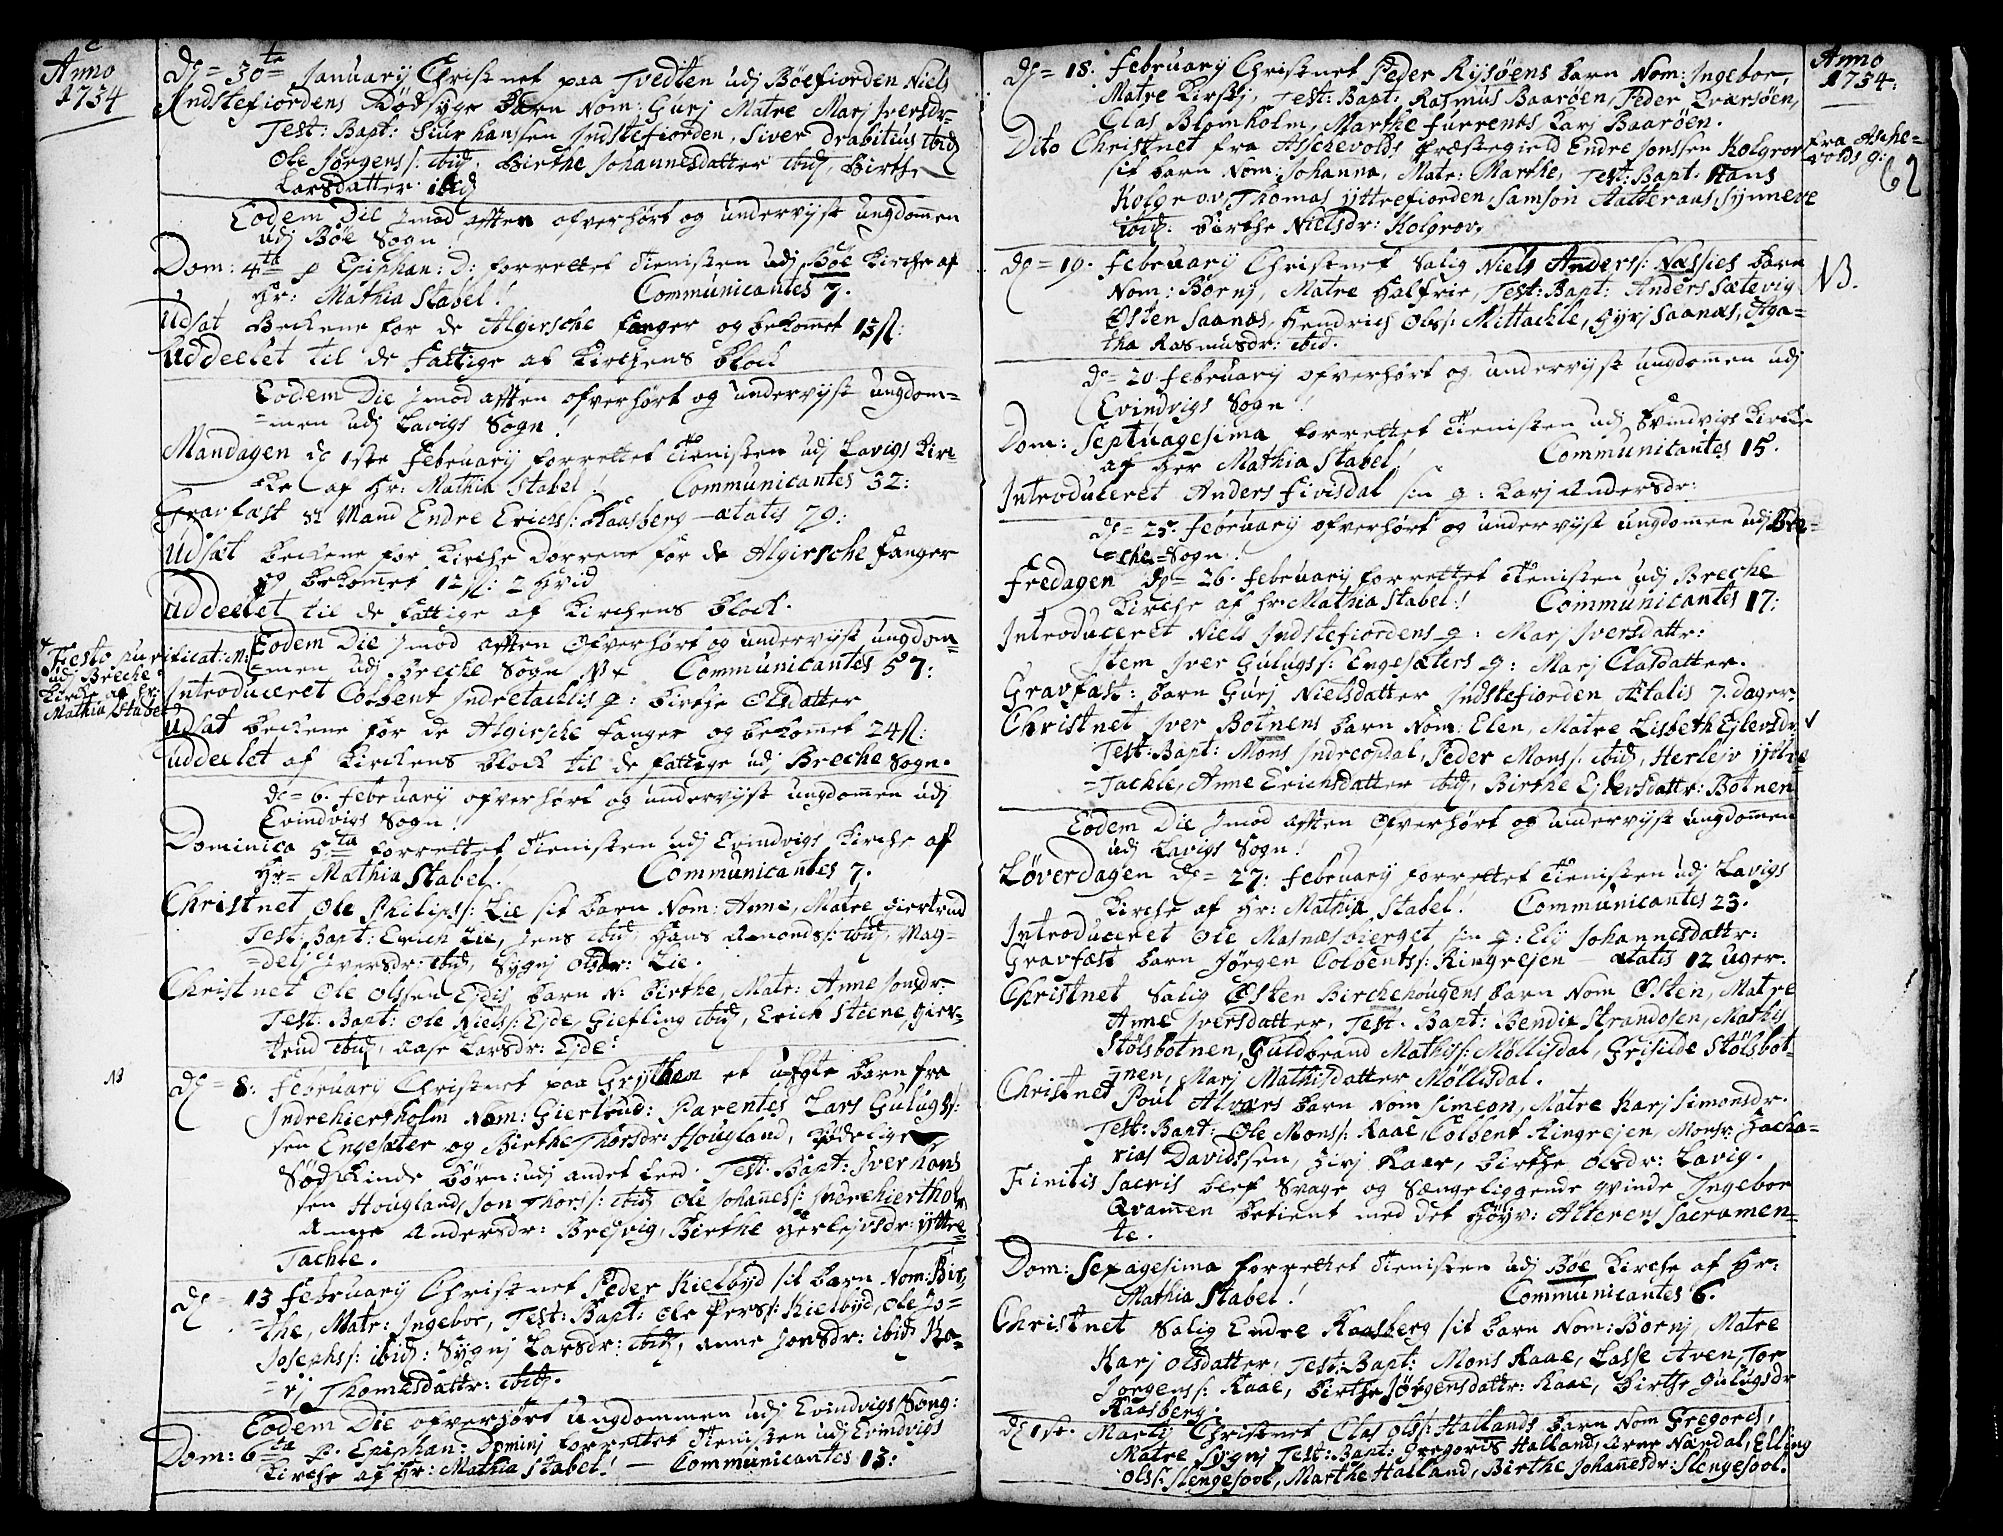 Anno
1734
d. 30te January Christnet paa Tvedten udj Böefiorden Niels
Indstefiordens Dödsyge barn Nom: Gurj Matre Marj Iversdr.
Test: Bapt: Siur hanssen Indstefiorden, Siver Drabitius ibid
Ole Jörgens: ibid. Birthe Johannesdatter ibid, Birthe
Larsdatter ibid
Eodem Die Imod afften ofverhört og undervijst ungdommen
udj Böe Sogn!
Dom: 4ta p Epiphan: D: forrettet Tienisten udj Böe Kirche af
Hr: Mathia Stabel! Communicantes 7.
Udsat Beckene for de Algirsche fanger og bekommet 13 ſl:
Uddeelet til de fattige af Kirchens block
Eodem Die Imod afften ofverhört og undervijst ungdom=
=men udj Lavigs Sogn!
Mandagen d. 1ste February forrettet Tienisten udj Lavigs Kir=
ke af Hr: Mathia Stabel! Communicantes 32:
Gravfæst st Mand Endre Erichs: Raasberg ætatis 79:
Udsæt beckene for Kirche Dörrene for de Algirsche fanger
og bekommet 12 ſl: 2 Hvid
Uddeelet til de fattige af Kirchens block.
Festo purificat: M:
udj Breche
Kirche af Hr:
Mathia Stabel
Eodem Die Imod afften Ofverhört og undervijst ungdom=
=men udj Breche Sogn Communicantes 57:
Introduceret Colbent Indretachlis q: Birthe Olsdatter
Udsat beckene for de Algirsche fanger og bekommet 24 ſl:
uddeelet af Kirchens block til de fattige udj Breche Sogn.
d. 6. February ofverhört og undervijst ungdommen udj
Evindvigs Sogn!
Dominica 5ta forrettet Tienisten udj Evindvigs Kirche af
Hr= Mathia Stabel! Communicantes 7.
Christnet Ole Philips: Lie sit barn Nom: Anne, Matre Giertrud
Test: Bapt: Erich Lie, Jens ibid, Hans Amonds: ibid, Mag=
=delj Iversdr: ibid, Sygnj Olsdr: Lie.
Christnet Ole Olssen Ejdis barn N: Birthe, Matr: Anne Jonsdr:
Test: Bapt: Ole Niels: Ejde, Giefling ibid, Erich Steene, Gier=
trud ibid, Aase Larsdr: Ejde:
NB
d. 8: February Christnet paa Grythen et uegte barn fra
Indrehiertholm Nom: Giertrud: Parentes Lars Gulugs:
sen Engesæter og Birthe Thorsdr: Hougland, bödelige
Södskinde Börn: udj andet Leed. Test: Bapt: Iver hans
sen Hougland, Jon Thors: ibid Ole Johannes: Indrehiertholm
Anne Andersdr: Brejvig, Birthe Herlejvsdr: Yttre=
Tachle.
d. 13 February Christnet Peder Kielbyd sit barn Nom: Bir=
=the, Matr: Ingebor, Test: Bapt: Ole Pers: Kielbyd, Ole Jo=
Josephs: ibid: Sygnj Larsdr: ibid, Anne Jonsdr: ibid Ka=
=rj Thomesdattr: ibid.
Eodem Die ofverhört ungdommen udj Evindvigs Song:
Dom: 6ta p. Epiphan: Dominj forrettet Tienisten udj Evindvigs
Kirche af Hr: Mathia Stabel! — Communicantes 13:
Anno
1734.
62
d. 18. February Christnet Peder Rysöens barn Nom: Ingebor,
Matre Kirstj, Test: Bapt: Rasmus Baaröen, Peder Qværsöen,
Clas Blomholm, Marthe furrenæs Karj Baaröen.
fra Asche=
volds g:
Dito Christnet fra Aschevolds præstegield Endre Jonssen Kolgrov
sit barn Nom: Johanna, Matr: Marthe, Test: Bapt. Hans
Kolgrov, Thomas Yttrefiorden, Samson Aatteraas, Synneve
ibid: Birthe Nielsdr: Kolgrov.
NB.
d. 19. February Christnet Salig Niels Anders: Næssies barn
Nom: Börnj, Matre Halfrie, Test: Bapt: Anders Sætevig
Östen Saanæs, Hendrich Obs: Mittachle, Gyrj Saanæs, Aga=
tha Rasmusdr: ibid.
d. 20 February ofverhört og undervijst ungdommen udj
Evindvigs Sogn!
Dom: Septuagesima forrettet Tienisten udj Evindvigs Kirche
af Her Mathia Stabel! Communicantes 15.
Introduceret Anders Fivisdal sin q: Karj Andersdr:
d. 25. February ofverhört og undervijst ungdommen udj Bre=
=che=Sogn!
Fredagen d. 26. February forrettet Tienisten udj Breche
Kirche af hr: Mathia Stabel! Communicantes 17:
Introduceret Niels Indstefiordens q: Marj Iversdattr:
Item Iver Gulugs: Engesæters q: Marj Clasdatter.
Gravfæst: barn Gurj Nielsdatter Indstefiorden Ætatis 7 dager
Christnet Iver Botnens barn Nom: Elen, Matre Lisbeth Ejlevsdr:
Test: Bapt: Mons Indreopdal, Peder Mons: ibid, Herlejv Yttre
=Tachle, Anne Erichsdatter ibid, Birthe Ejlevsdattr: Botnen
Eodem Die Imod afften Ofverhört og undervijst ungdommen
udj Lavigs Sogn!
Löverdagen d. 27: February forrettet Tienisten udj Lavigs
Kirche af Hr: Mathia Stabel! Communicantes 23.
Introduceret Ole Masnæsbierget sin q: Elj Johannesdattr:
Gravfæst barn Jörgen Colbents: Ringrejen — ætatis 12 Uger.
Christnet Salig Östen Birchehougens barn Nom Östen, Matre
Anne Iversdatter, Test. Bapt: Bendix Strandosen, Mathis
Stölsbotnen, Guldbrand Mathis: Möllisdal, Griside Stölsbot=
=nen, Marj Mathisdatter Möllisdal.
Christnet Poul Alvars barn Nom Simeon, Matre Karj Simonsdr.
Test: Bapt: Ole Mons: Raae, Colbent Ringrejen, Monsr: Zacha=
rias Davidssen, Zirj Raae, Birthe Olsdr: Lavig.
Finitis Sacris blef Svage og Sængeliggende qvinde Ingebor
Qvamen betient med det Höyv: Alterens Sacramen=
te.
Dom: Sexagesima forrettet Tienisten udj Böe Kirche af Hr:
Mathia Stabel! Communicantes 6.
Christnet Salig Endre Raasberg sit barn Nom: Bornj, Matre
Karj Olsdatter, Test: Bapt: Mons Raae, Lasse Aven, Tor
Jörgens: Raae, Birthe Jörgensdattr: Raae, Birthe Gulugsdr
Raasberg.
d. 1ste. Martij Christnet Clas Ols: Hallands barn Nom Gregoris,
Matre Sygnj Test: Bapt: Gregoris Halland, Arne Nærdal, Elling
Ols: Slengesool, Marthe Halland, Birthe Johannesdr: Slengesool.